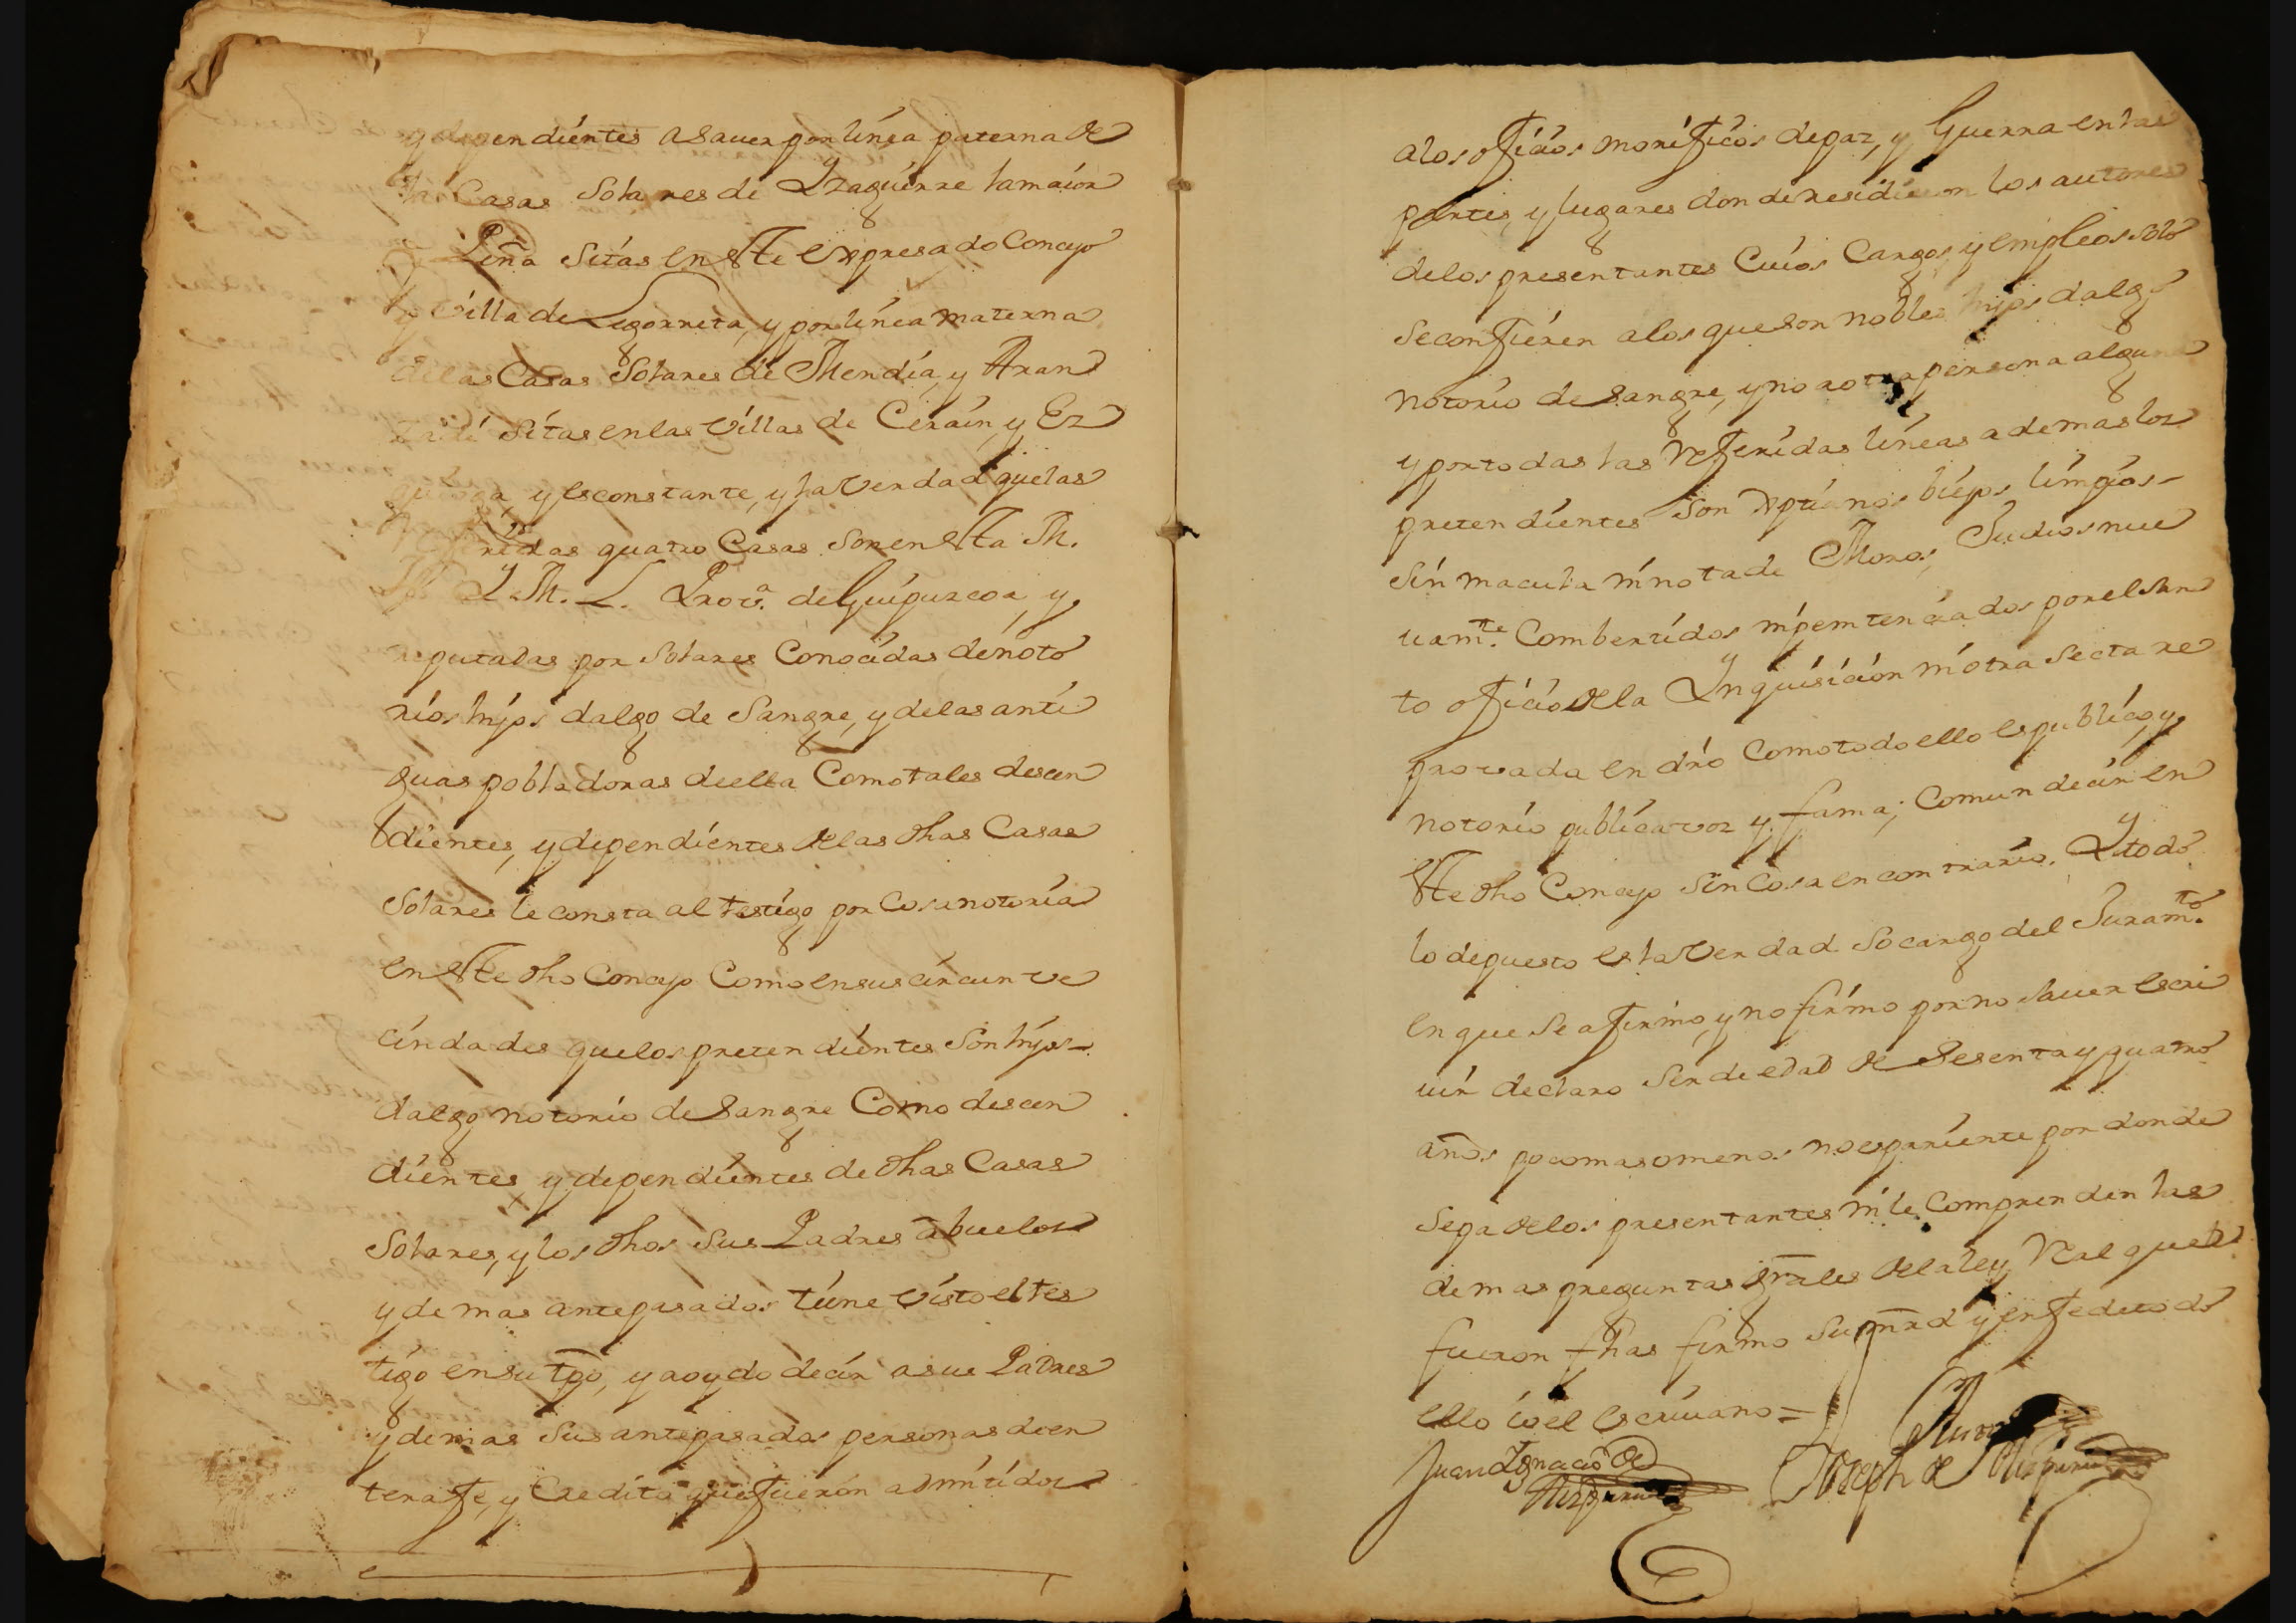 y dependientes asauer por linea paterna de
las Casas Solares de Yzaguirre lamaior
Peña Sitas en este expresado Concejo
y Villa de Legorreta, y por linea materna
de las Casas Solares de Mendia, y Aran
Sitas en las Villas de Cerain, y Ez
y es constante, y la Verdad que las
quatro Casas son en esta M.
N. Y M. L. Prova. de Guipuzcoa, y
reputadas por Solares Conocidas de noto
rios hijos dalgo de Sangre, y de las anti
guas pobladoras de ella Como tales descen
dientes, y dependientes de las dhas Casas
Solares le consta al testigo por Cosa notoria
en este dho Concejo Como en sus circunve
cindades que los pretendientes Son hijos-
dalgo notorio de Sangre Como descen
dientes y dependientes de dhas Casas
Solares, y los dhos sus Padres abuelos
y demas antepasados tiene visto el tes
tigo en su tpo, y a oydo decir a sus Padres
y demas sus antepasados personas de en
tera fe, y Credito que fueron admitidos
a los oficios de paz, y Guerra en las
partes, y lugares donde residieron los autores
de los presentantes Cuios Cargos, y empleos solo
se confieren a los que son nobles hijos dalgo
notorio de Sangre, y no a otra persona alguna
y por todas las Referidas lineas ademas los
pretendientes son Xptianos biejos limpios-
Sin macula ni nota de Moros, Judios nue
uamte. Combertidos ni penitenciados por el San
to oficio de la Inquisicion ni otra Secta re
provada en dro Como todo ello es publico, y
notorio publica voz y fama, Comun decir en
este dho Concejo sin Cosa en contrario. Y todo
lo depuesto es la Verdad So cargo del Juramto.
en que se afirmo, y no firmo por no sauer escri
uir declaro Ser de edad de Sesenta y quatro
años poco mas o menos no es pariente por donde
sepa de los presentantes ni le Comprenden las
demas preguntas grales de la ley Real que le
fueron fhas firmo su mrd y en fe de todo
ello io el escriuano =
Juan Ignacio de
Joseph de